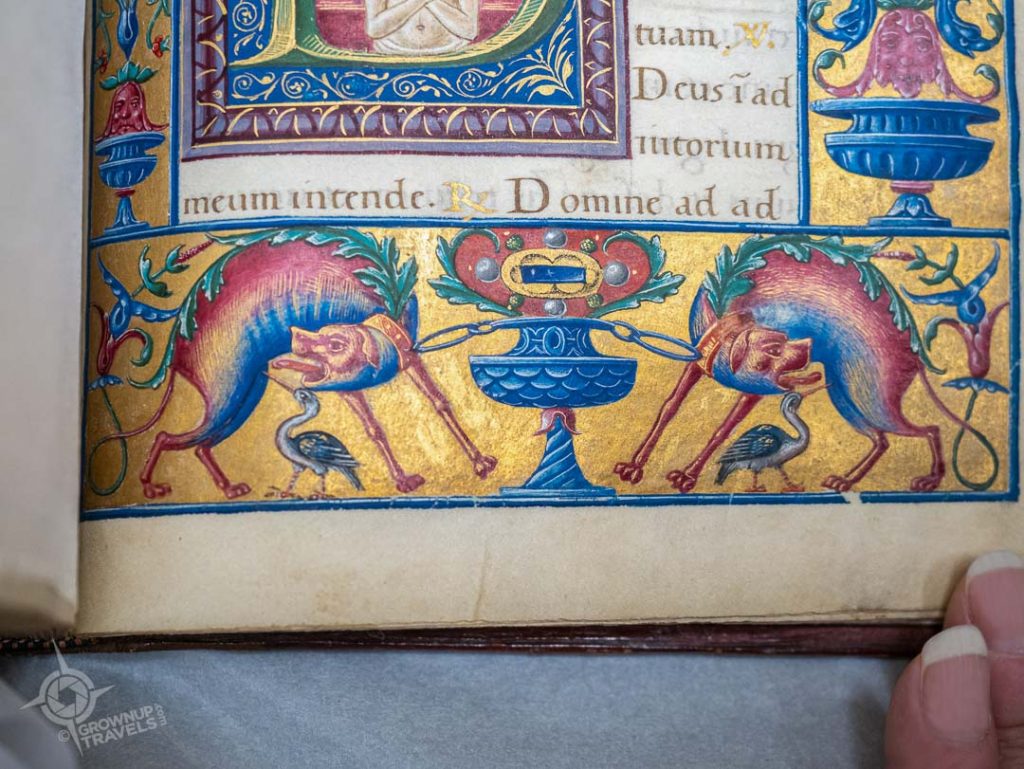 tuam. V.
Deus ī ad
iutorium
meum intende. R Domine ad ad
© GROWNUP
TRAVELS.COM